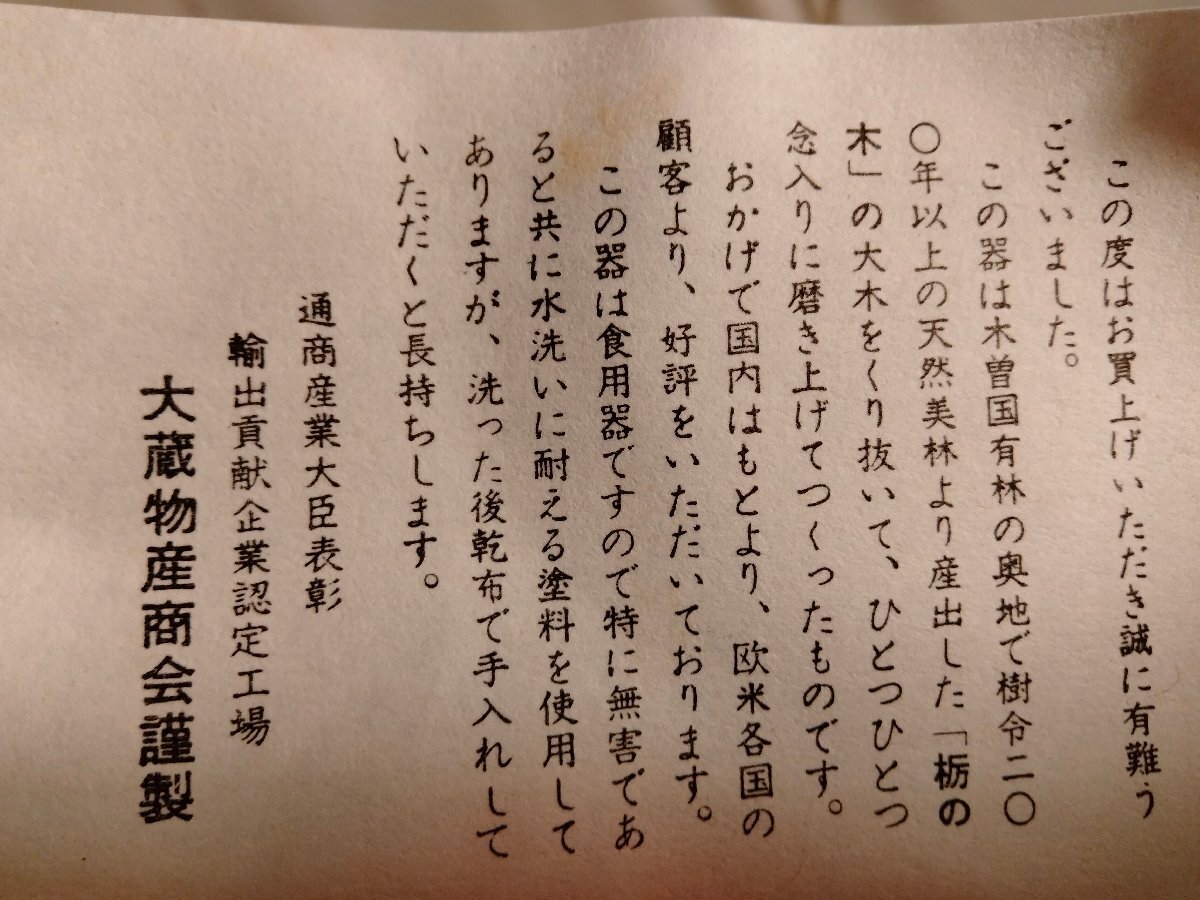 この度はお買上げいただき誠に有難う
ございました。
この器は木曽国有林の奥地で樹令二〇
〇年以上の天然美林より産出した「栃の
木」の大木をくり抜いて、ひとつひとつ
念入りに磨き上げてつくったものです。
おかげで国内はもとより、欧米各国の
顧客より、好評をいただいております。
この器は食用器ですので特に無害であ
ると共に水洗いに耐える塗料を使用して
ありますが、洗った後乾布で手入れして
いただくと長持ちします。
通商産業大臣表彰
輸出貢献企業認定工場
大蔵物産商会謹製